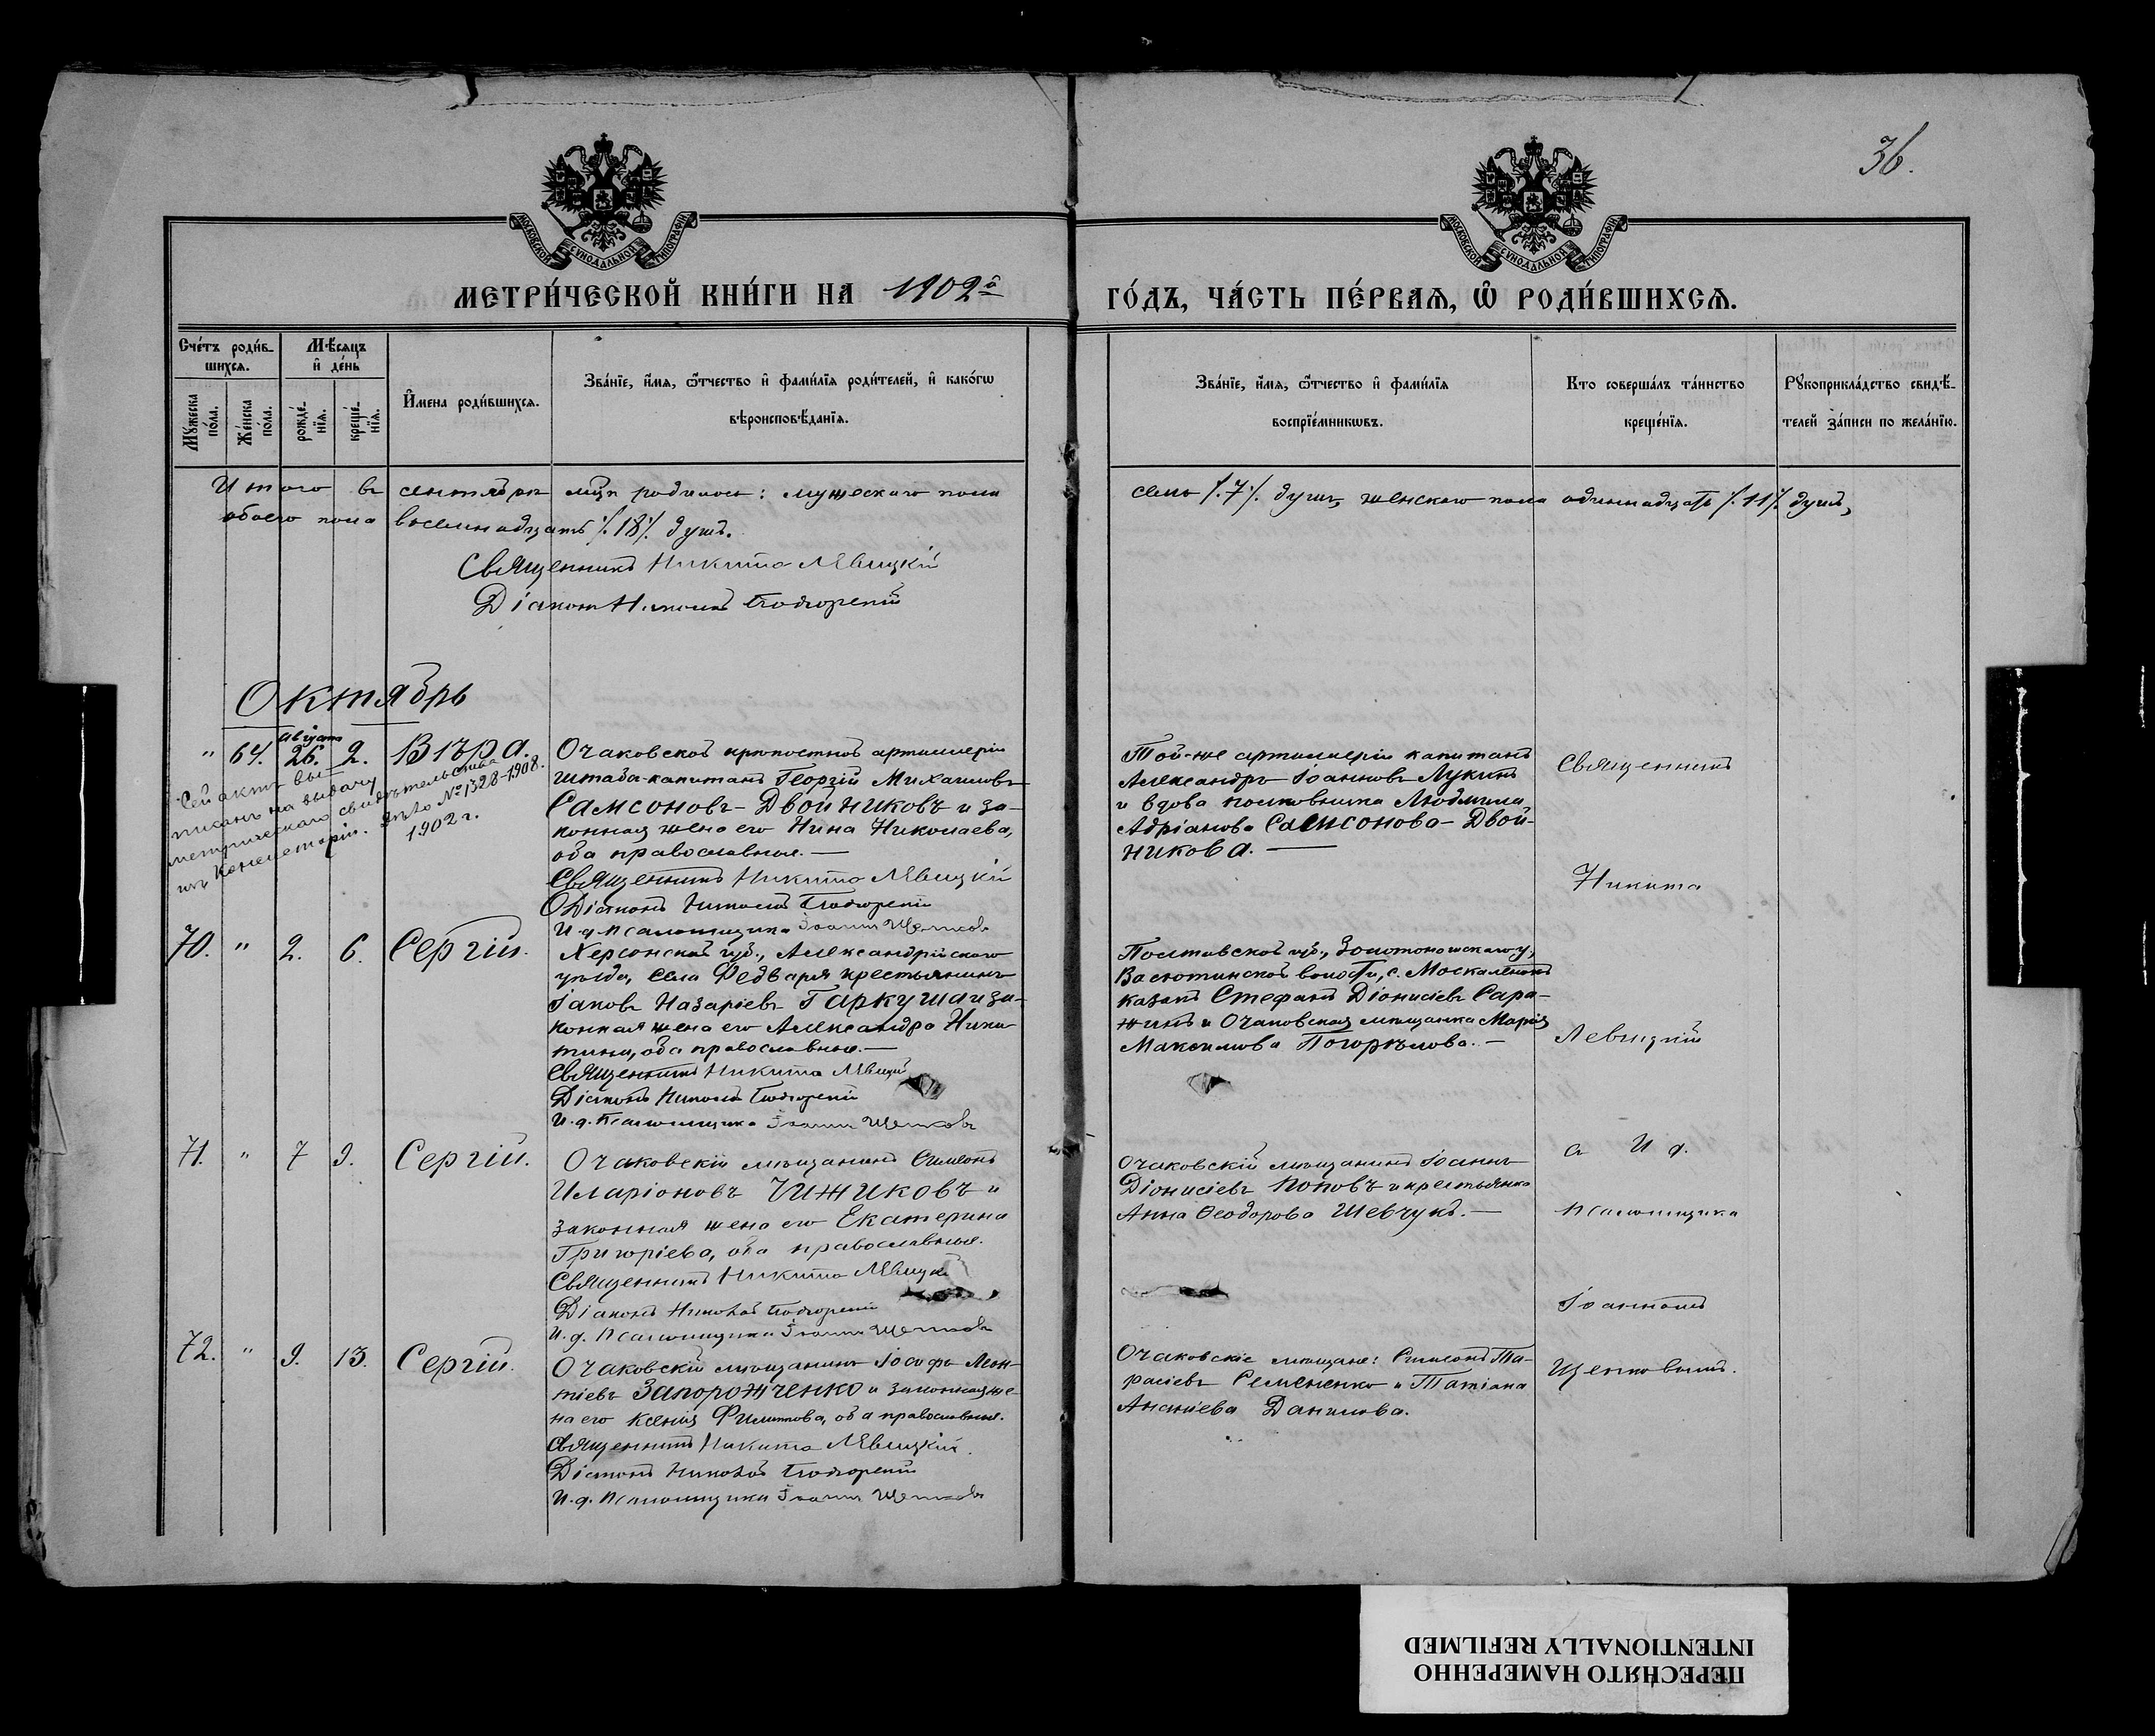 36.
МОСКОВСКОЙ СУНОДАЛЬНОЙ ТИПОГРАФІИ
МОСКОВСКОЙ СУНОДАЛЬНОЙ ТИПОГРАФІИ
МЕТРИ́ЧЕСКОЙ КНИ́ГИ НА 1902й
ГО́ДЪ, ЧА́СТЬ ПЕ́РВАѦ, Ѡ҆ РОДИ́ВШИХСѦ.
Сче́тъ роди́в-
шихсѧ.
Мѣ́сѧцъ
и҆ де́нь
Мꙋ́жеска
по́ла.
Же́нска
по́ла.
рожде́-
нїѧ.
креще́-
нїѧ.
И҆мена роди́вшихсѧ.
Зва́нїе, и҆́мѧ, ѻ҆́тчество и҆ фами́лїѧ роди́телей, и҆ како́гѡ
вѣроисповѣ́данїѧ.
Зва́нїе, и҆́мѧ, ѻ҆́тчество и҆ фами́лїѧ
воспрїе́мникѡвъ.
Кто соверша́лъ та́инство
креще́нїѧ.
Рꙋкоприкла́дство свидѣ́-
телей за́писи по жела́нїю.
Итого въ сентябрѣ мцѣ родилось: мужескаго пола
семь /.7/. душъ, женскаго пола одиннадцать /.11/. душъ,
обоего пола восемнадцать /.18/. душъ.
Священникъ Никита Левицкій
Діаконъ Николай
Октябрь
августа
" 64. 26. 2. Вѣра.
Сей актъ вы-
писанъ на выдачу
метрическаго свидѣтельства
изъ Консисторіи. Дѣло № 1328-1908.
1902 г.
Очаковской крѣпостной артиллеріи
штабъ-капитанъ Георгій Михаиловъ
Самсоновъ-Двойниковъ и за-
конная жена его Нина Николаева,
оба православные.—
Священникъ Никита Левицкій
Діаконъ Николай
И. д. псаломщика Іоаннъ Щепковъ
Той-же артиллеріи капитанъ
Александръ Іоанновъ Лукинъ
и вдова полковника Людмила
Адріанова Самсонова-Двой-
никова.—
Священникъ
Никита
Левицкій
съ И. д.
псаломщика
Іоанномъ
Щепковымъ.
70. " 2. 6. Сергій.
Херсонской губ., Александрійскаго
уѣзда, села Федваря крестьянинъ
Іаковъ Назаріевъ Гаркуша и за-
конная жена его Александра Ники-
тина, оба православные.—
Священникъ Никита Левицкій
Діаконъ Николай
И. д. Псаломщика Іоаннъ Щепковъ
Полтавской губ., Золотоношскаго у,
Васютинской волости, с. Москаленокъ
казакъ Стефанъ Діонисіевъ Сара-
жинъ и Очаковская мѣщанка Марія
Максимова Погорѣлова.—
71. " 7 9. Сергій.
Очаковскій мѣщанинъ Симеонъ
Иларіоновъ Чижиковъ и
законная жена его Екатерина
Григоріева, оба православные.
Священникъ Никита Левицкій
Діаконъ Николай
И. д. Псаломщика Іоаннъ Щепковъ
Очаковскій мѣщанинъ Іоаннъ
Діонисіевъ Поповъ и крестьянка
Анна Ѳеодорова Шевчукъ.—
72. " 9. 13. Сергій.
Очаковскій мѣщанинъ Іосифъ Леон-
тіевъ Запорожченко и законная же-
на его Ксенія Филиппова, оба православные.
Священникъ Никита Левицкій.
Діаконъ Николай
И. д. Псаломщика Іоаннъ Щепковъ
Очаковскіе мѣщане: Симеонъ Та-
расіевъ Семененко и Татіана
Ананіева Данилова.
ПЕРЕСНЯТО НАМЕРЕННО
INTENTIONALLY REFILMED